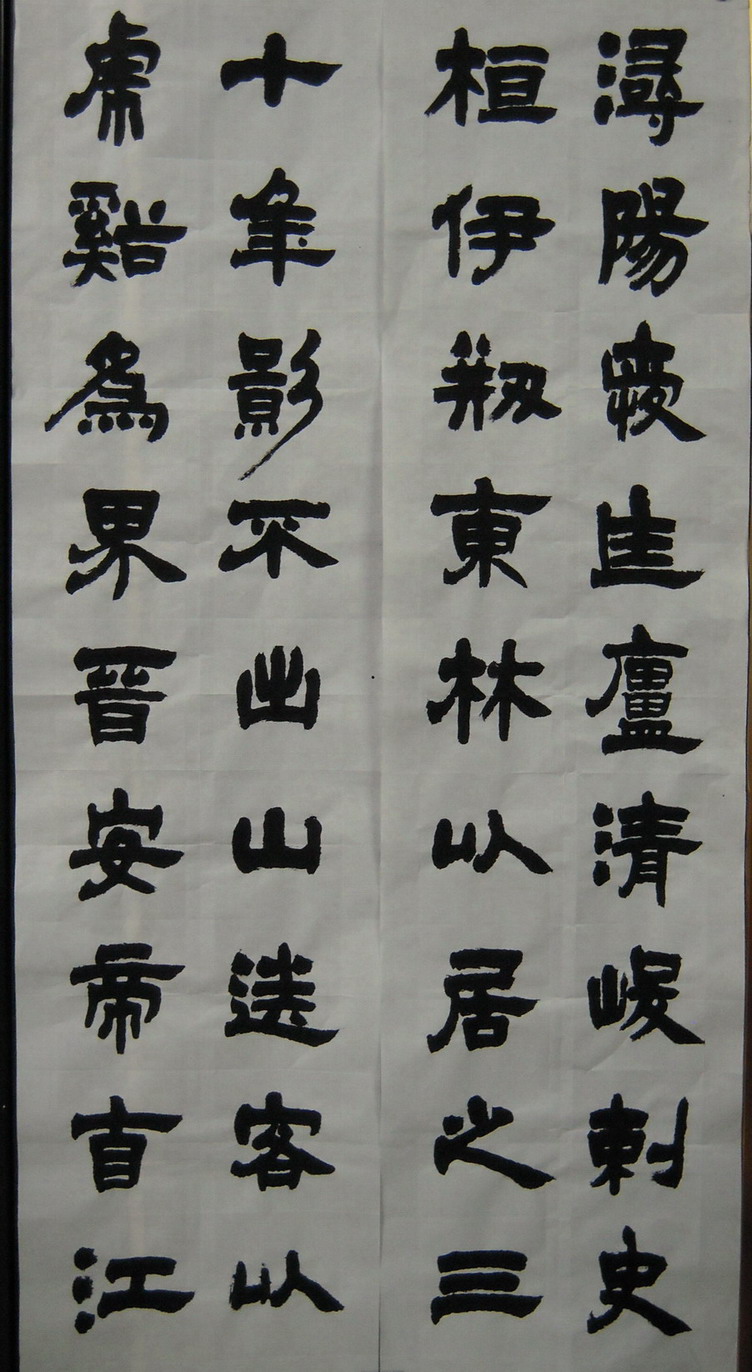 潯陽愛匡廬清峻刺史
桓伊剏東林以居之三
十年影不出山送客以
虎谿爲界晉安帝自江